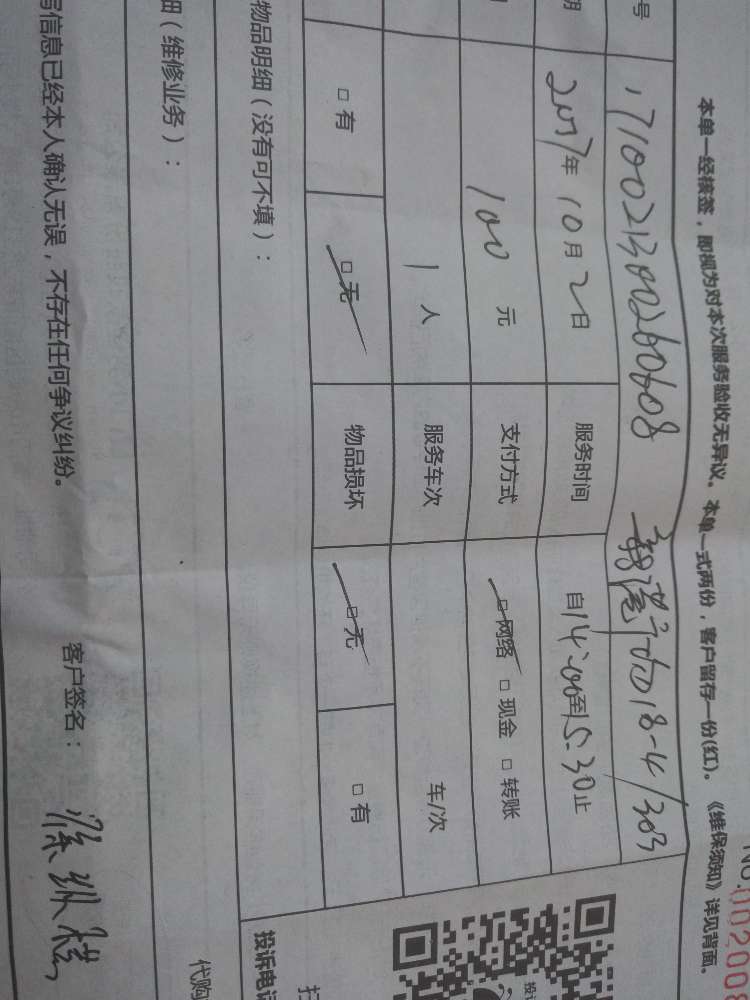 No.002008
本单一经接签，即视为对本次服务验收无异议。本单一式两份，客户留存一份(红)。《维保须知》详见背面。
号 1710021300260608
2017年10月2日 服务时间 自14:00至15:30止
100元 支付方式 □网络 □现金 □转账
1人 服务车次 车/次
□有 □无 物品损坏 □无 □有
物品明细（没有可不填）：
细（维修业务）：
写信息已经本人确认无误，不存在任何争议纠纷。 客户签名：
投诉电话
代购